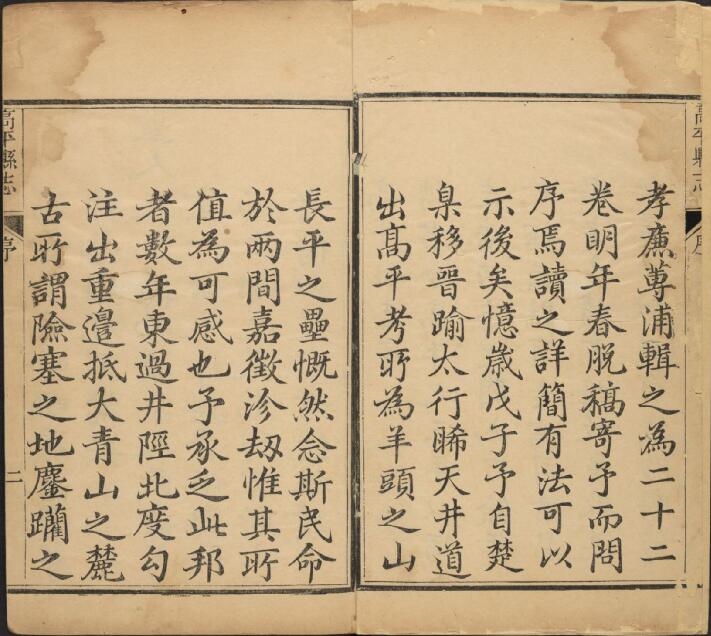 髙平縣志
序
孝廉蓴浦輯之為二十二
卷眀年春脫稿寄予而問
序焉讀之詳簡有法可以
示後矣憶歲戊子予自楚
臬移晉踰太行睎天井道
出髙平考所為羊頭之山
長平之壘慨然念斯民命
於兩間嘉徵沴劫惟其所
值為可感也予承乏此邦
者數年東過井陘北度勾
注出重邉抵大青山之麓
古所謂險塞之地鏖躪之
髙平縣志
序
二